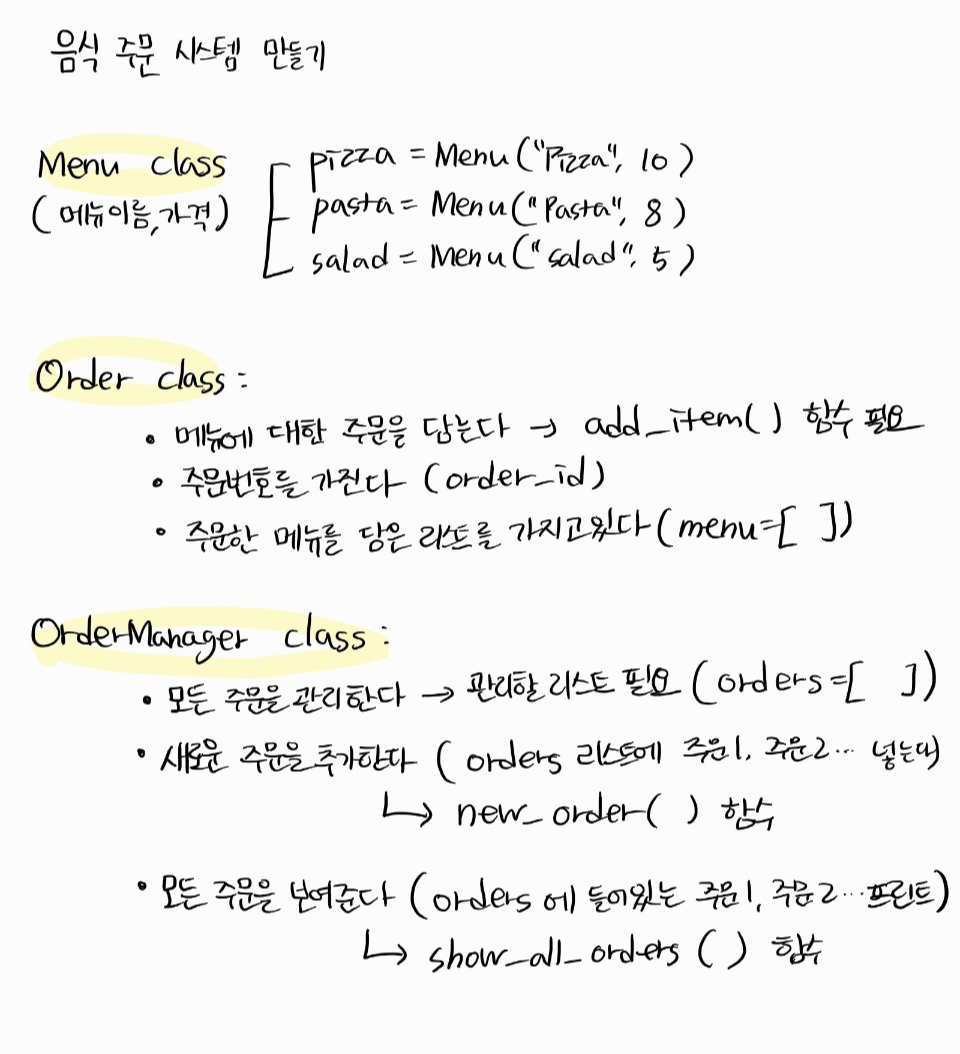 음식 주문 시스템 만들기
Menu class
(메뉴이름,가격)
pizza = Menu("Pizza", 10)
pasta = Menu("Pasta", 8)
salad = Menu("salad", 5)
Order class :
• 메뉴에 대한 주문을 담는다 → add_item() 함수 필요
• 주문번호를 가진다 (order_id)
• 주문한 메뉴를 담은 리스트를 가지고있다 (menu=[ ])
OrderManager class :
• 모든 주문을 관리한다 → 관리할 리스트 필요 (orders=[ ])
• 새로운 주문을 추가한다 (orders 리스트에 주문1, 주문2... 넣는다)
↳ new_order( ) 함수
• 모든 주문을 보여준다 (orders에 들어있는 주문1, 주문2...프린트)
↳ show_all_orders ( ) 함수